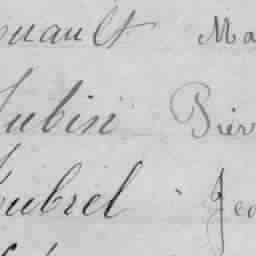 ouault Ma
Aubin Pier
oubrel Jea